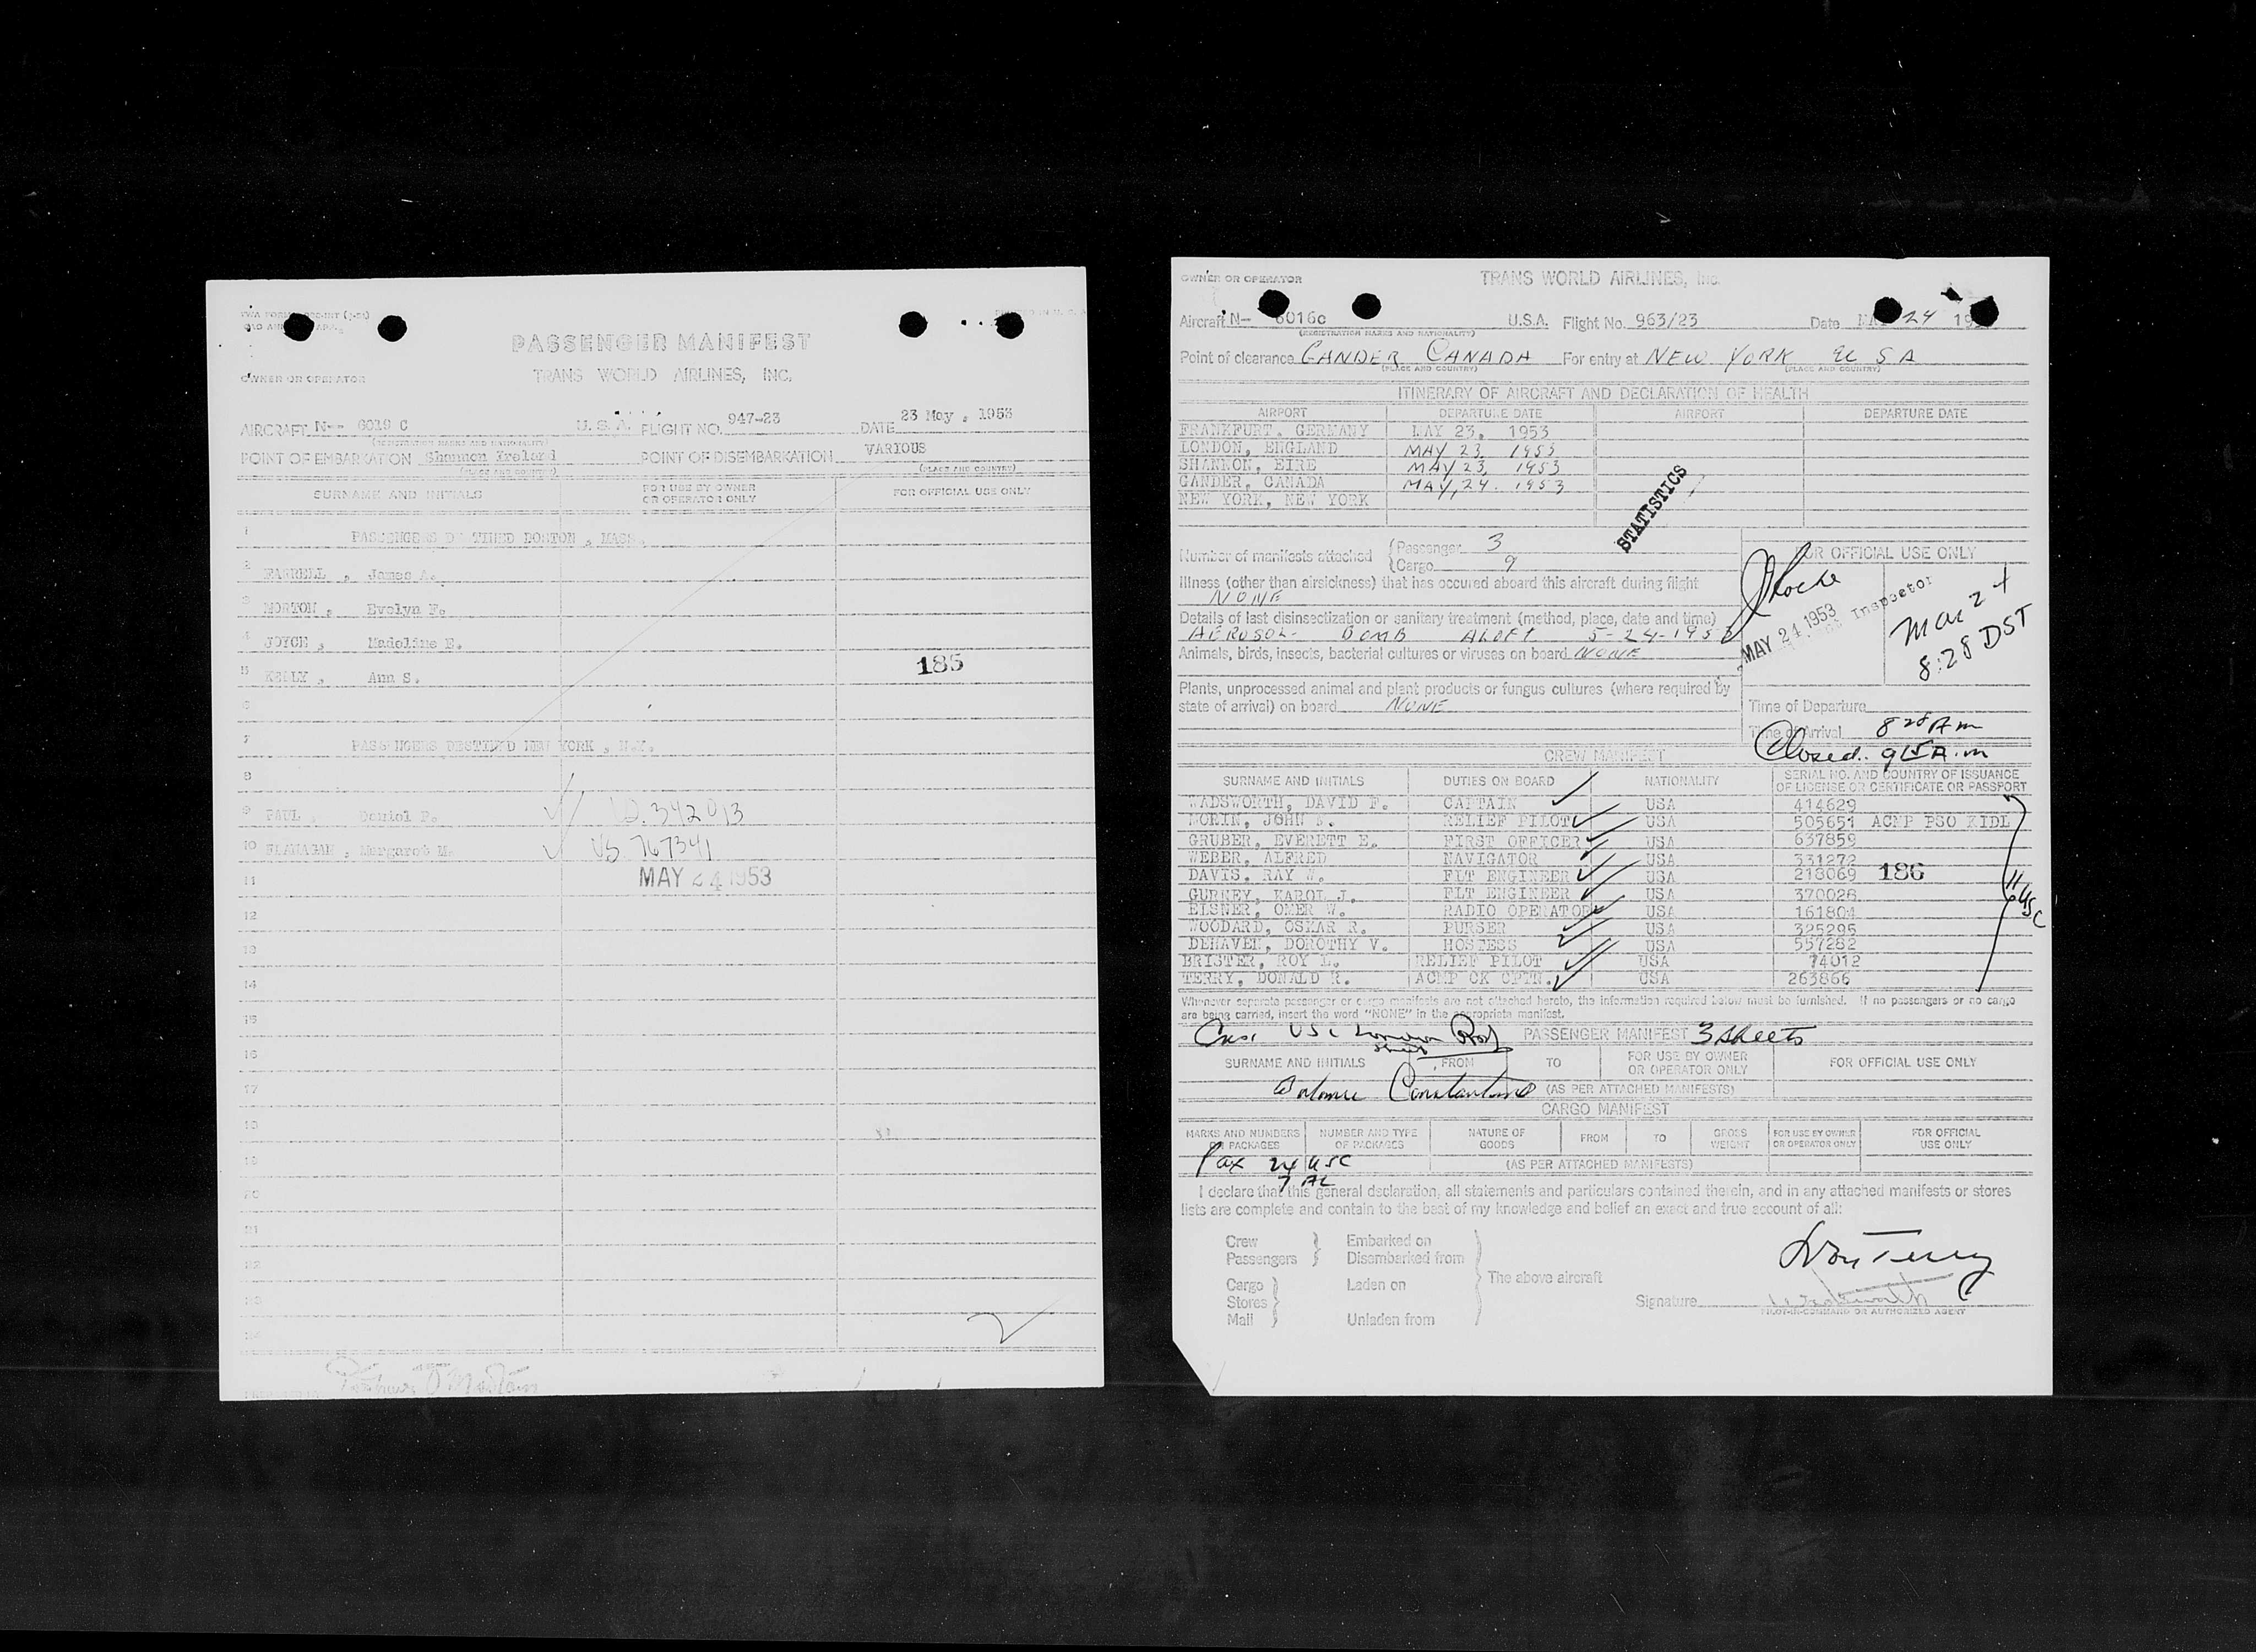 PASSENGER MANIFEST
OWNER OR OPERATOR
TRANS WORLD AIRLINES, INC.
AIRCRAFT N-- 6019 C U. S. A. FLIGHT NO. 947-23 DATE 23 May, 1953
(REGISTRATION MARKS AND NATIONALITY)
POINT OF EMBARKATION Shannon Ireland POINT OF DISEMBARKATION VARIOUS
(PLACE AND COUNTRY) (PLACE AND COUNTRY)
SURNAME AND INITIALS FOR USE BY OWNER OR OPERATOR ONLY FOR OFFICIAL USE ONLY
1 PASSENGERS DESTINED BOSTON, MASS.
2 FARRELL, James A.
3 MORTON, Evelyn F.
4 JOYCE, Madeline E.
5 KELLY, Ann S. 185
6
7 PASSENGERS DESTINED NEW YORK, N.Y.
8
9 PAUL, Daniel F. 342013
10 FLANAGAN, Margaret M. US 767341
11 MAY 24 1953
12
13
14
15
16
17
18
19
20
21
22
23
24
OWNER OR OPERATOR TRANS WORLD AIRLINES, Inc.
Aircraft N- 6016c U.S.A. Flight No. 963/23 Date MAY 24 19
(REGISTRATION MARKS AND NATIONALITY)
Point of clearance GANDER CANADA For entry at NEW YORK U S A
(PLACE AND COUNTRY) (PLACE AND COUNTRY)
ITINERARY OF AIRCRAFT AND DECLARATION OF HEALTH
AIRPORT DEPARTURE DATE AIRPORT DEPARTURE DATE
FRANKFURT, GERMANY MAY 23, 1953
LONDON, ENGLAND MAY 23, 1953
SHANNON, EIRE MAY 23, 1953
GANDER, CANADA MAY, 24. 1953
NEW YORK, NEW YORK
STATISTICS
Number of manifests attached {Passenger 3
{Cargo 9
FOR OFFICIAL USE ONLY
Illness (other than airsickness) that has occured aboard this aircraft during flight
NONE
Details of last disinsectization or sanitary treatment (method, place, date and time)
AEROSOL BOMB ALOFT 5-24-1953
MAY 24 1953
Inspector
Mai 24
8:28 DST
Animals, birds, insects, bacterial cultures or viruses on board NONE
Plants, unprocessed animal and plant products or fungus cultures (where required by
state of arrival) on board NONE
Time of Departure
Time of Arrival 8 28 Am
Closed.. 9 15 A.m
CREW MANIFEST
SURNAME AND INITIALS DUTIES ON BOARD NATIONALITY SERIAL NO. AND COUNTRY OF ISSUANCE OF LICENSE OR CERTIFICATE OR PASSPORT
WADSWORTH, DAVID F. CAPTAIN USA 414629
MORIN, JOHN RELIEF PILOT USA 505651 ACMP BSO KIDL
GRUBER, EVERETT E. FIRST OFFICER USA 637859
WEBER, ALFRED NAVIGATOR USA 331272
DAVIS, RAY W. FLT ENGINEER USA 218069 186
GURNEY, KAROL J. FLT ENGINEER USA 370028
EISNER, OMER W. RADIO OPERATOR USA 161804
WOODARD, OSKAR R. PURSER USA 325295
DEHAVEN, DOROTHY V. HOSTESS USA 557282
BRISTER, ROY L. RELIEF PILOT USA 74012
TERRY, DONALD R. ACMP CK CPTN. USA 263866
11 USC
Whenever separate passenger or cargo manifests are not attached hereto, the information required below must be furnished. If no passengers or no cargo
are being carried, insert the word "NONE" in the appropriate manifest.
PASSENGER MANIFEST 3 sheets
SURNAME AND INITIALS FROM TO FOR USE BY OWNER OR OPERATOR ONLY FOR OFFICIAL USE ONLY
(AS PER ATTACHED MANIFESTS)
CARGO MANIFEST
MARKS AND NUMBERS ON PACKAGES NUMBER AND TYPE OF PACKAGES NATURE OF GOODS FROM TO GROSS WEIGHT FOR USE BY OWNER OR OPERATOR ONLY FOR OFFICIAL USE ONLY
Pax 24 USC (AS PER ATTACHED MANIFESTS)
7 AL
I declare that this general declaration, all statements and particulars contained therein, and in any attached manifests or stores
lists are complete and contain to the best of my knowledge and belief an exact and true account of all:
Crew Embarked on
Passengers Disembarked from
Cargo Laden on The above aircraft
Stores
Mail Unladen from
Don Terry
Signature Wadsworth
PILOT-IN-COMMAND OR AUTHORIZED AGENT